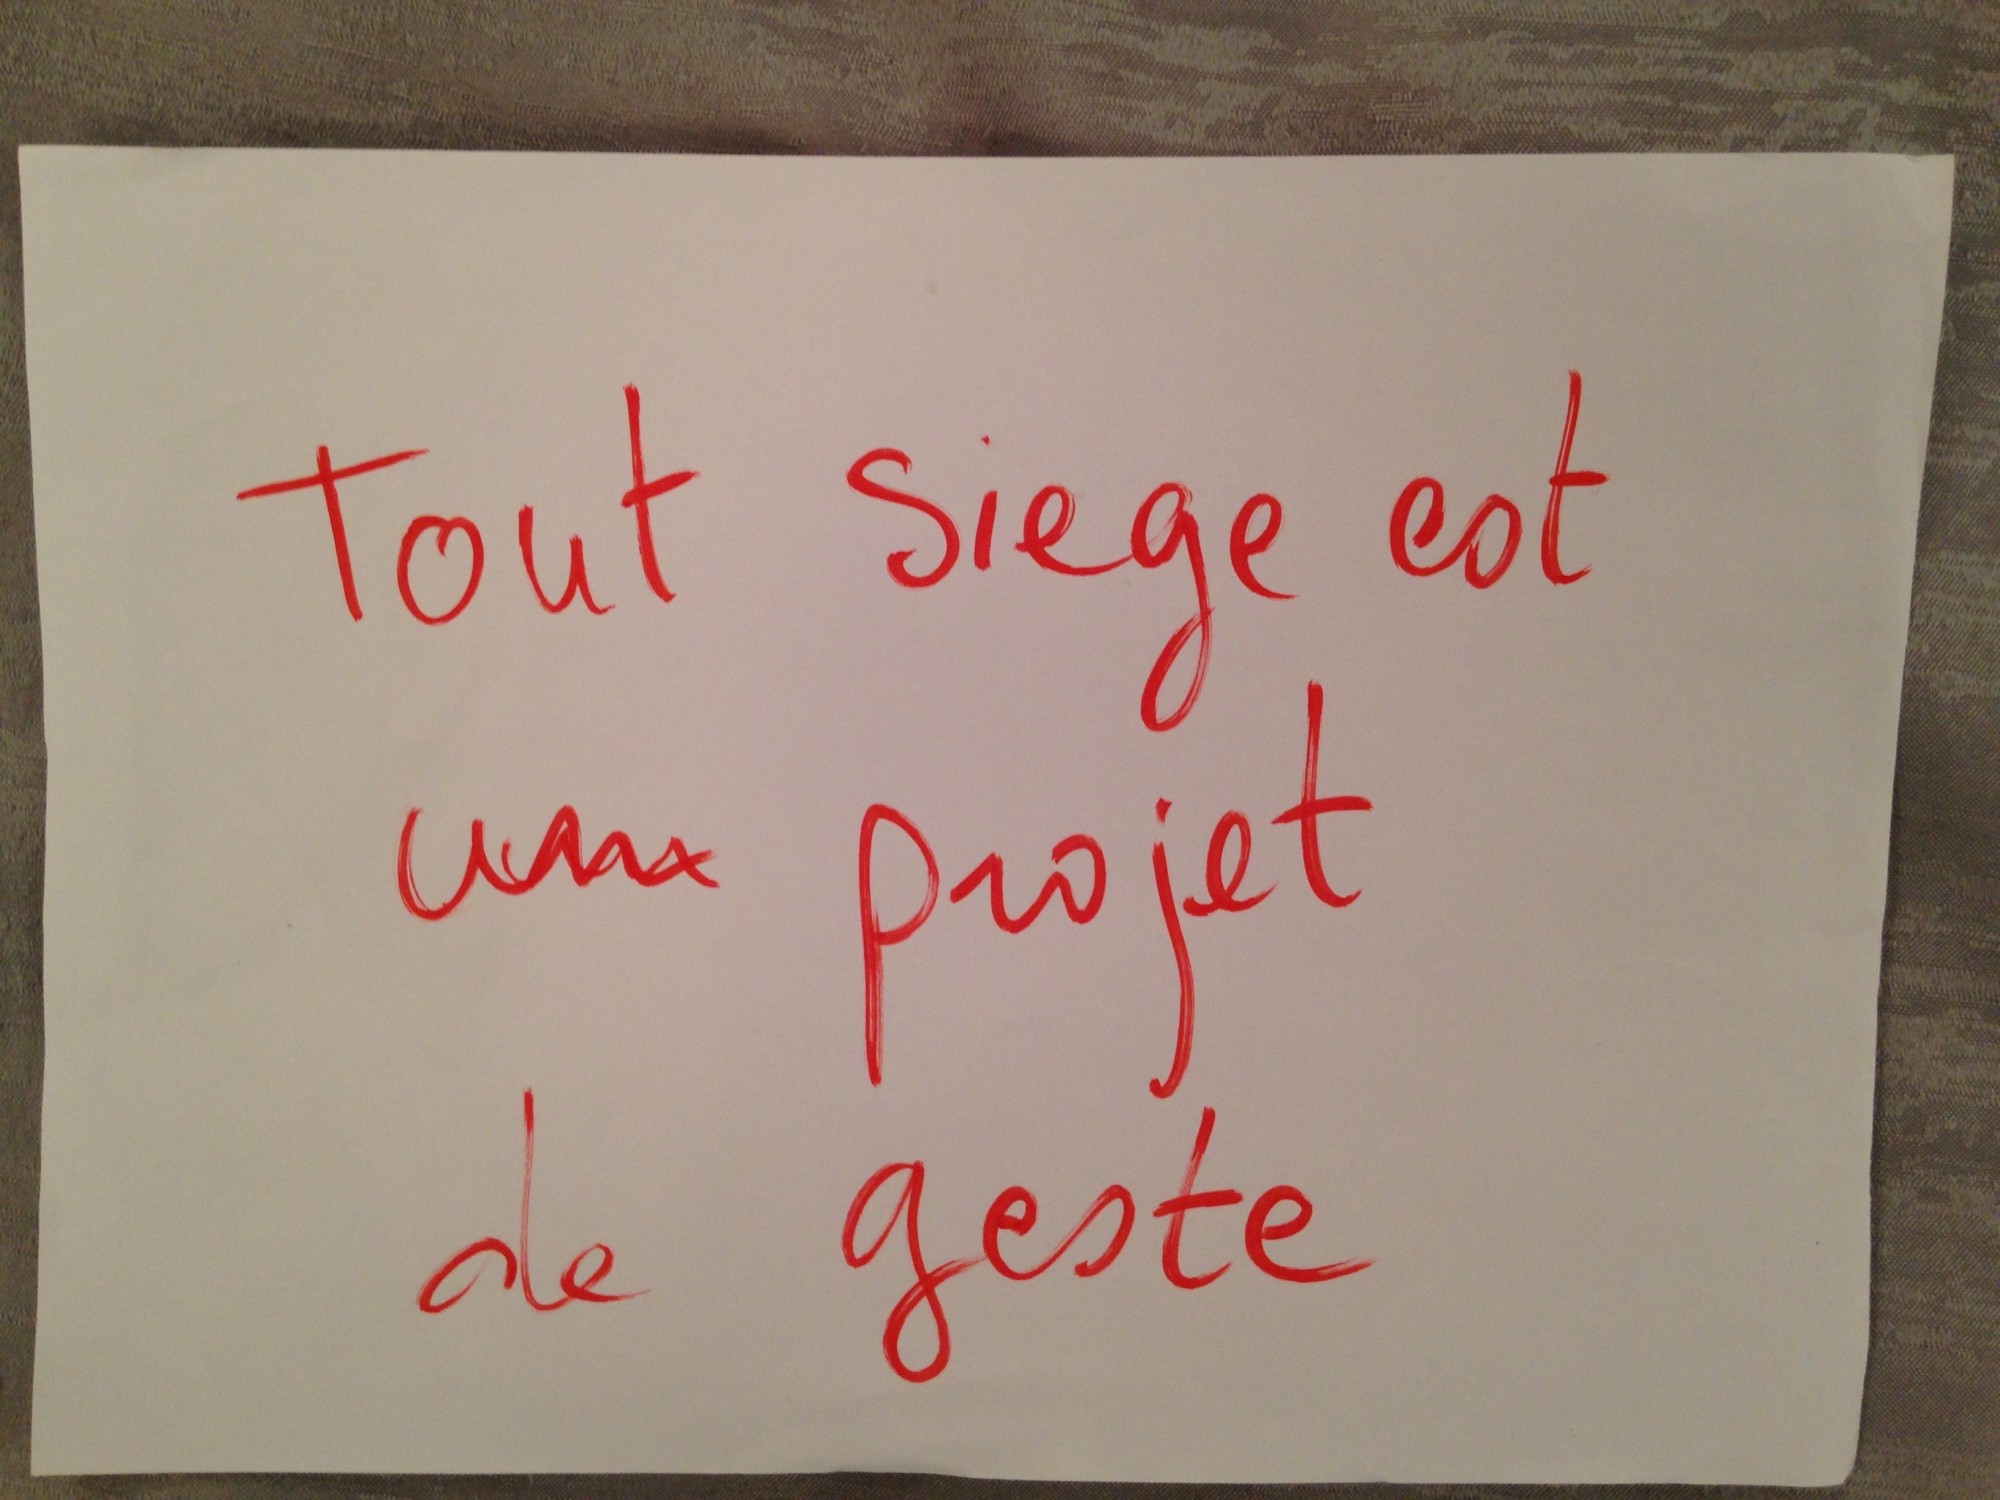 Tout siege est
un projet
de geste